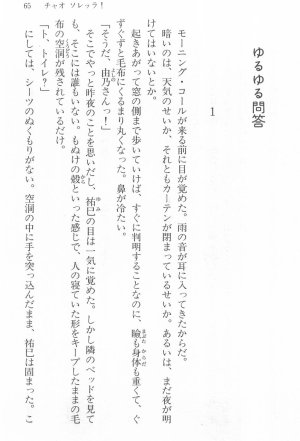 65　チャオ ソレッラ！
ゆるゆる問答
1
モーニング・コールが来る前に目が覚めた。雨の音が耳に入ってきたからだ。
暗いのは、天気のせいか、それともカーテンが閉まっているせいか。あるいは、まだ夜が明
けてはいないとか。
起きあがって窓の側まで歩いていけば、すぐに判明することなのに、瞼も身体も重くて、ぐ
ずぐずと毛布にくるまり丸くなった。鼻が冷たい。
「そうだ、由乃さんっ！」
そこでやっと昨夜のことを思いだし、祐巳の目は一気に覚めた。しかし隣のベッドを見て
も、そこには誰もいない。もぬけの殻といった感じで、人の寝ていた形をキープしたままの毛
布の空洞が残されているだけ。
「ト、トイレ？」
にしては、シーツのぬくもりがない。空洞の中に手を突っ込んだまま、祐巳は固まった。こ